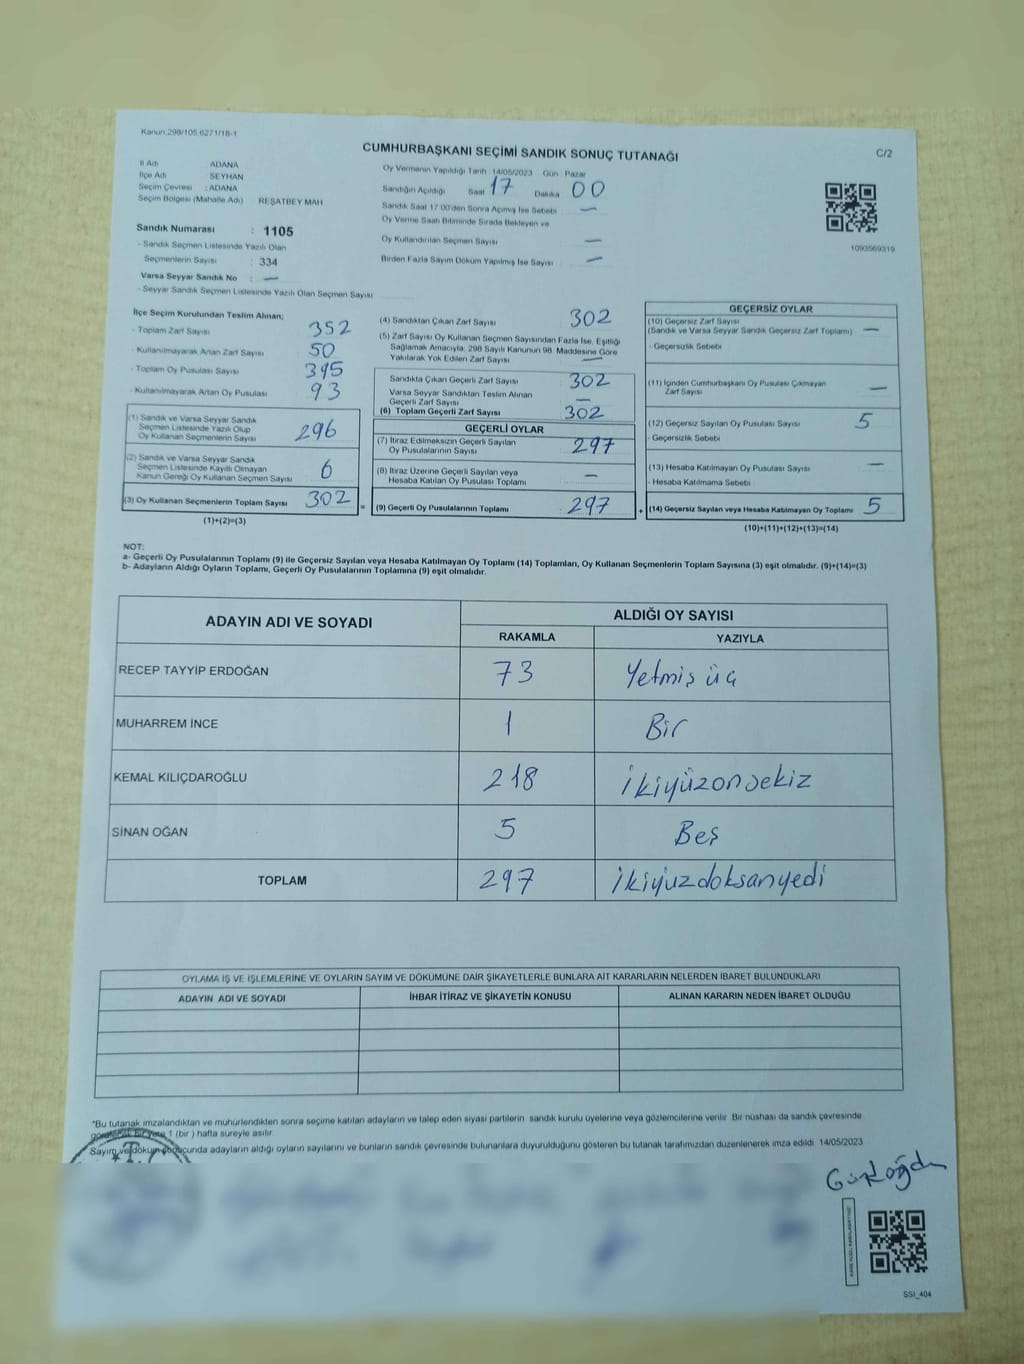 Kanun:298/105.6271/18-1
CUMHURBAŞKANI SEÇİMİ SANDIK SONUÇ TUTANAĞI
C/2
İl Adı ADANA
İlçe Adı SEYHAN
Seçim Çevresi : ADANA
Seçim Bölgesi (Mahalle Adı) REŞATBEY MAH
Oy Vermenin Yapıldığı Tarih 14/05/2023 Gün Pazar
Sandığın Açıldığı Saat 17 Dakika 00
Sandık Saat 17:00'den Sonra Açılmış İse Sebebi —
Oy Verme Saati Bitiminde Sırada Bekleyen ve
Oy Kullandırılan Seçmen Sayısı —
Birden Fazla Sayım Döküm Yapılmış İse Sayısı —
1093569319
Sandık Numarası : 1105
- Sandık Seçmen Listesinde Yazılı Olan
Seçmenlerin Sayısı : 334
Varsa Seyyar Sandık No : —
- Seyyar Sandık Seçmen Listesinde Yazılı Olan Seçmen Sayısı
İlçe Seçim Kurulundan Teslim Alınan;
- Toplam Zarf Sayısı 352
- Kullanılmayarak Artan Zarf Sayısı 50
- Toplam Oy Pusulası Sayısı 395
- Kullanılmayarak Artan Oy Pusulası 93
(1) Sandık ve Varsa Seyyar Sandık
Seçmen Listesinde Yazılı Olup
Oy Kullanan Seçmenlerin Sayısı 296
(2) Sandık ve Varsa Seyyar Sandık
Seçmen Listesinde Kayıtlı Olmayan
Kanun Gereği Oy Kullanan Seçmen Sayısı 6
(3) Oy Kullanan Seçmenlerin Toplam Sayısı 302
(1)+(2)=(3)
=
(4) Sandıktan Çıkan Zarf Sayısı 302
(5) Zarf Sayısı Oy Kullanan Seçmen Sayısından Fazla İse, Eşitliği
Sağlamak Amacıyla; 298 Sayılı Kanunun 98. Maddesine Göre
Yakılarak Yok Edilen Zarf Sayısı —
Sandıkta Çıkan Geçerli Zarf Sayısı 302
Varsa Seyyar Sandıktan Teslim Alınan
Geçerli Zarf Sayısı —
(6) Toplam Geçerli Zarf Sayısı 302
GEÇERLİ OYLAR
(7) İtiraz Edilmeksizin Geçerli Sayılan
Oy Pusulalarının Sayısı 297
(8) İtiraz Üzerine Geçerli Sayılan veya
Hesaba Katılan Oy Pusulası Toplamı —
(9) Geçerli Oy Pusulalarının Toplamı 297
+
GEÇERSİZ OYLAR
(10) Geçersiz Zarf Sayısı
(Sandık ve Varsa Seyyar Sandık Geçersiz Zarf Toplamı) —
- Geçersizlik Sebebi
(11) İçinden Cumhurbaşkanı Oy Pusulası Çıkmayan
Zarf Sayısı —
(12) Geçersiz Sayılan Oy Pusulası Sayısı 5
- Geçersizlik Sebebi
(13) Hesaba Katılmayan Oy Pusulası Sayısı —
- Hesaba Katılmama Sebebi
(14) Geçersiz Sayılan veya Hesaba Katılmayan Oy Toplamı 5
(10)+(11)+(12)+(13)=(14)
NOT:
a- Geçerli Oy Pusulalarının Toplamı (9) ile Geçersiz Sayılan veya Hesaba Katılmayan Oy Toplamı (14) Toplamları, Oy Kullanan Seçmenlerin Toplam Sayısına (3) eşit olmalıdır. (9)+(14)=(3)
b- Adayların Aldığı Oyların Toplamı, Geçerli Oy Pusulalarının Toplamına (9) eşit olmalıdır.
ADAYIN ADI VE SOYADI
ALDIĞI OY SAYISI
RAKAMLA YAZIYLA
RECEP TAYYİP ERDOĞAN 73 Yetmiş üç
MUHARREM İNCE 1 Bir
KEMAL KILIÇDAROĞLU 218 İkiyüzonsekiz
SİNAN OĞAN 5 Beş
TOPLAM 297 İkiyüzdoksanyedi
OYLAMA İŞ VE İŞLEMLERİNE VE OYLARIN SAYIM VE DÖKÜMÜNE DAİR ŞİKAYETLERLE BUNLARA AİT KARARLARIN NELERDEN İBARET BULUNDUKLARI
ADAYIN ADI VE SOYADI İHBAR İTİRAZ VE ŞİKAYETİN KONUSU ALINAN KARARIN NEDEN İBARET OLDUĞU
*Bu tutanak imzalandıktan ve mühürlendikten sonra seçime katılan adayların ve talep eden siyasi partilerin sandık kurulu üyelerine veya gözlemcilerine verilir. Bir nüshası da sandık çevresinde
1 (bir) hafta süreyle asılır.
Sayım ve döküm sonucunda adayların aldığı oyların sayılarını ve bunların sandık çevresinde bulunanlara duyurulduğunu gösteren bu tutanak tarafımızdan düzenlenerek imza edildi. 14/05/2023
SSI_404